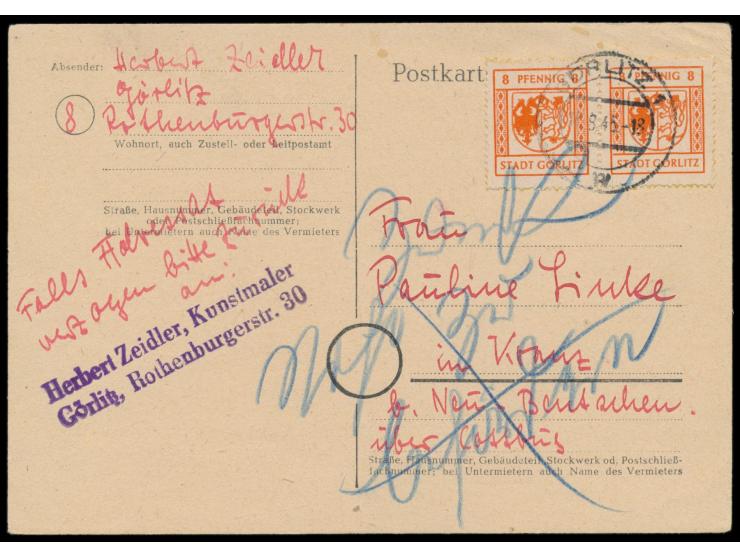 Absender: Herbert Zeidler
Görlitz
8 Rothenburgerstr. 30
Wohnort, auch Zustell- oder Leitpostamt
Straße, Hausnummer, Gebäudeteil, Stockwerk
oder Postschließfachnummer;
bei Untermietern auch Name des Vermieters
Falls Adressat
verzogen bitte zurück
an:
Herbert Zeidler, Kunstmaler
Görlitz, Rothenburgerstr. 30
Postkarte
8 PFENNIG 8
STADT GÖRLITZ
8 PFENNIG 8
STADT GÖRLITZ
GÖRLITZ 1
Frau
Pauline Linke
in Kranz
b. Neu-Bentschen.
über Cottbus
Zurück
Nicht zu
befördern
Straße, Hausnummer, Gebäudeteil, Stockwerk od. Postschließ-
fachnummer; bei Untermietern auch Name des Vermieters